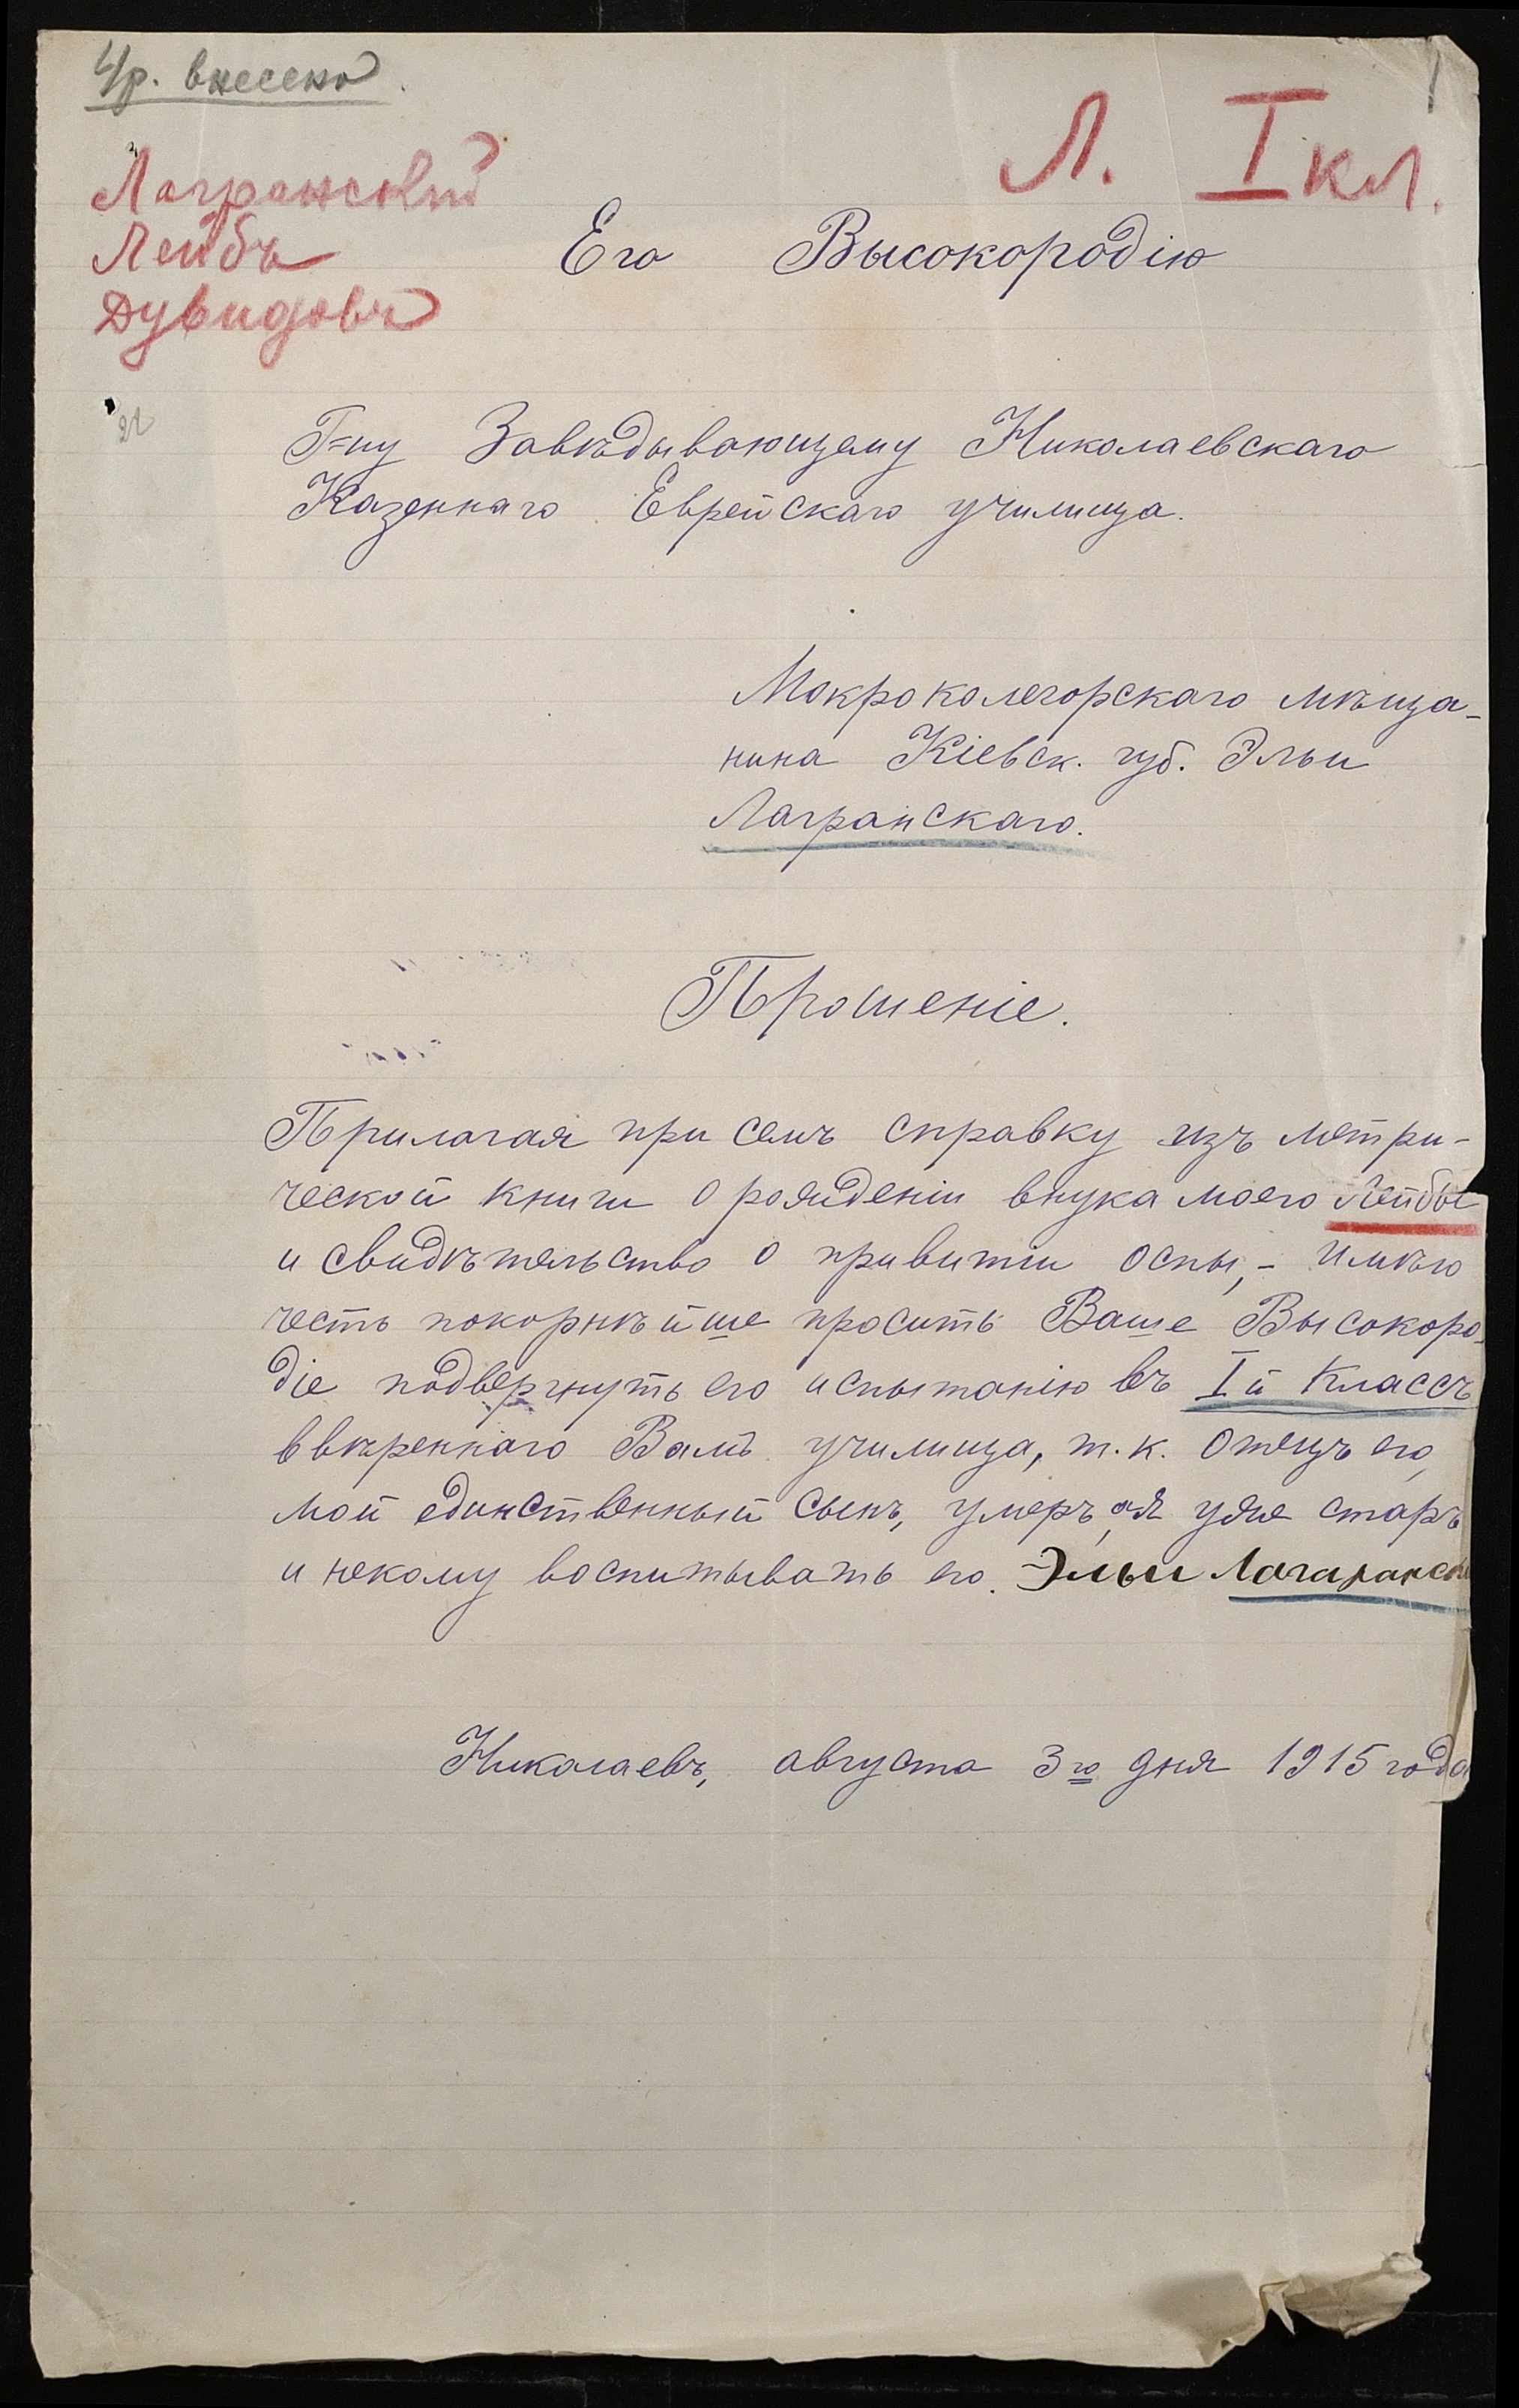 4р. внесено
Л. I кл.
Лагранский
Лейбъ
Дувидовъ
Его Высокородію
Г-ну Завѣдывающему Николаевскаго
Казеннаго Еврейскаго училища.
Мокрокалегорскаго мѣща-
нина Кіевск. губ. Эльи
Лагранскаго.
Прошеніе.
Прилагая при семъ справку изъ метри-
ческой книги о рожденіи внука моего Лейбы
и свидѣтельство о привитіи оспы, - имѣю
честь покорнѣйше просить Ваше Высокоро-
діе подвергнуть его испытанію въ I й классъ
ввѣреннаго Вамъ училища, т.к. отецъ его,
мой единственный сынъ, умеръ, а я уже старъ
и некому воспитывать его. Эльи
Николаевъ, августа 3го дня 1915 года